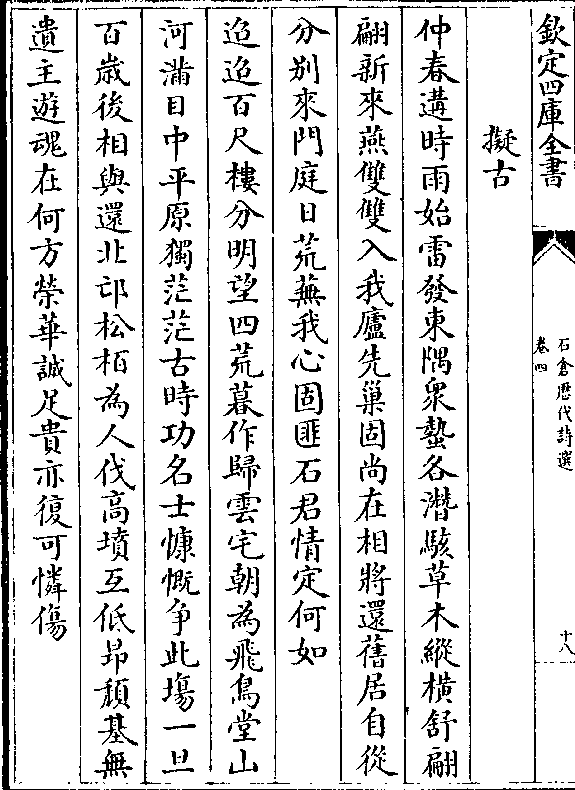 欽定四庫全書
石倉歴代詩選
卷四
十八
擬古
仲春遘時雨始雷發東隅衆蟄各潛駭草木縱橫舒翩
翩新來燕雙雙入我廬先巢固尚在相將還舊居自從
分别來門庭日荒蕪我心固匪石君情定何如
迢迢百尺樓分明望四荒暮作歸雲宅朝為飛鳥堂山
河滿目中平原獨茫茫古時功名士慷慨争此塲一旦
百歲後相與還北邙松栢為人伐髙墳互低昻頽基無
遺主遊魂在何方榮華誠足貴亦復可憐傷